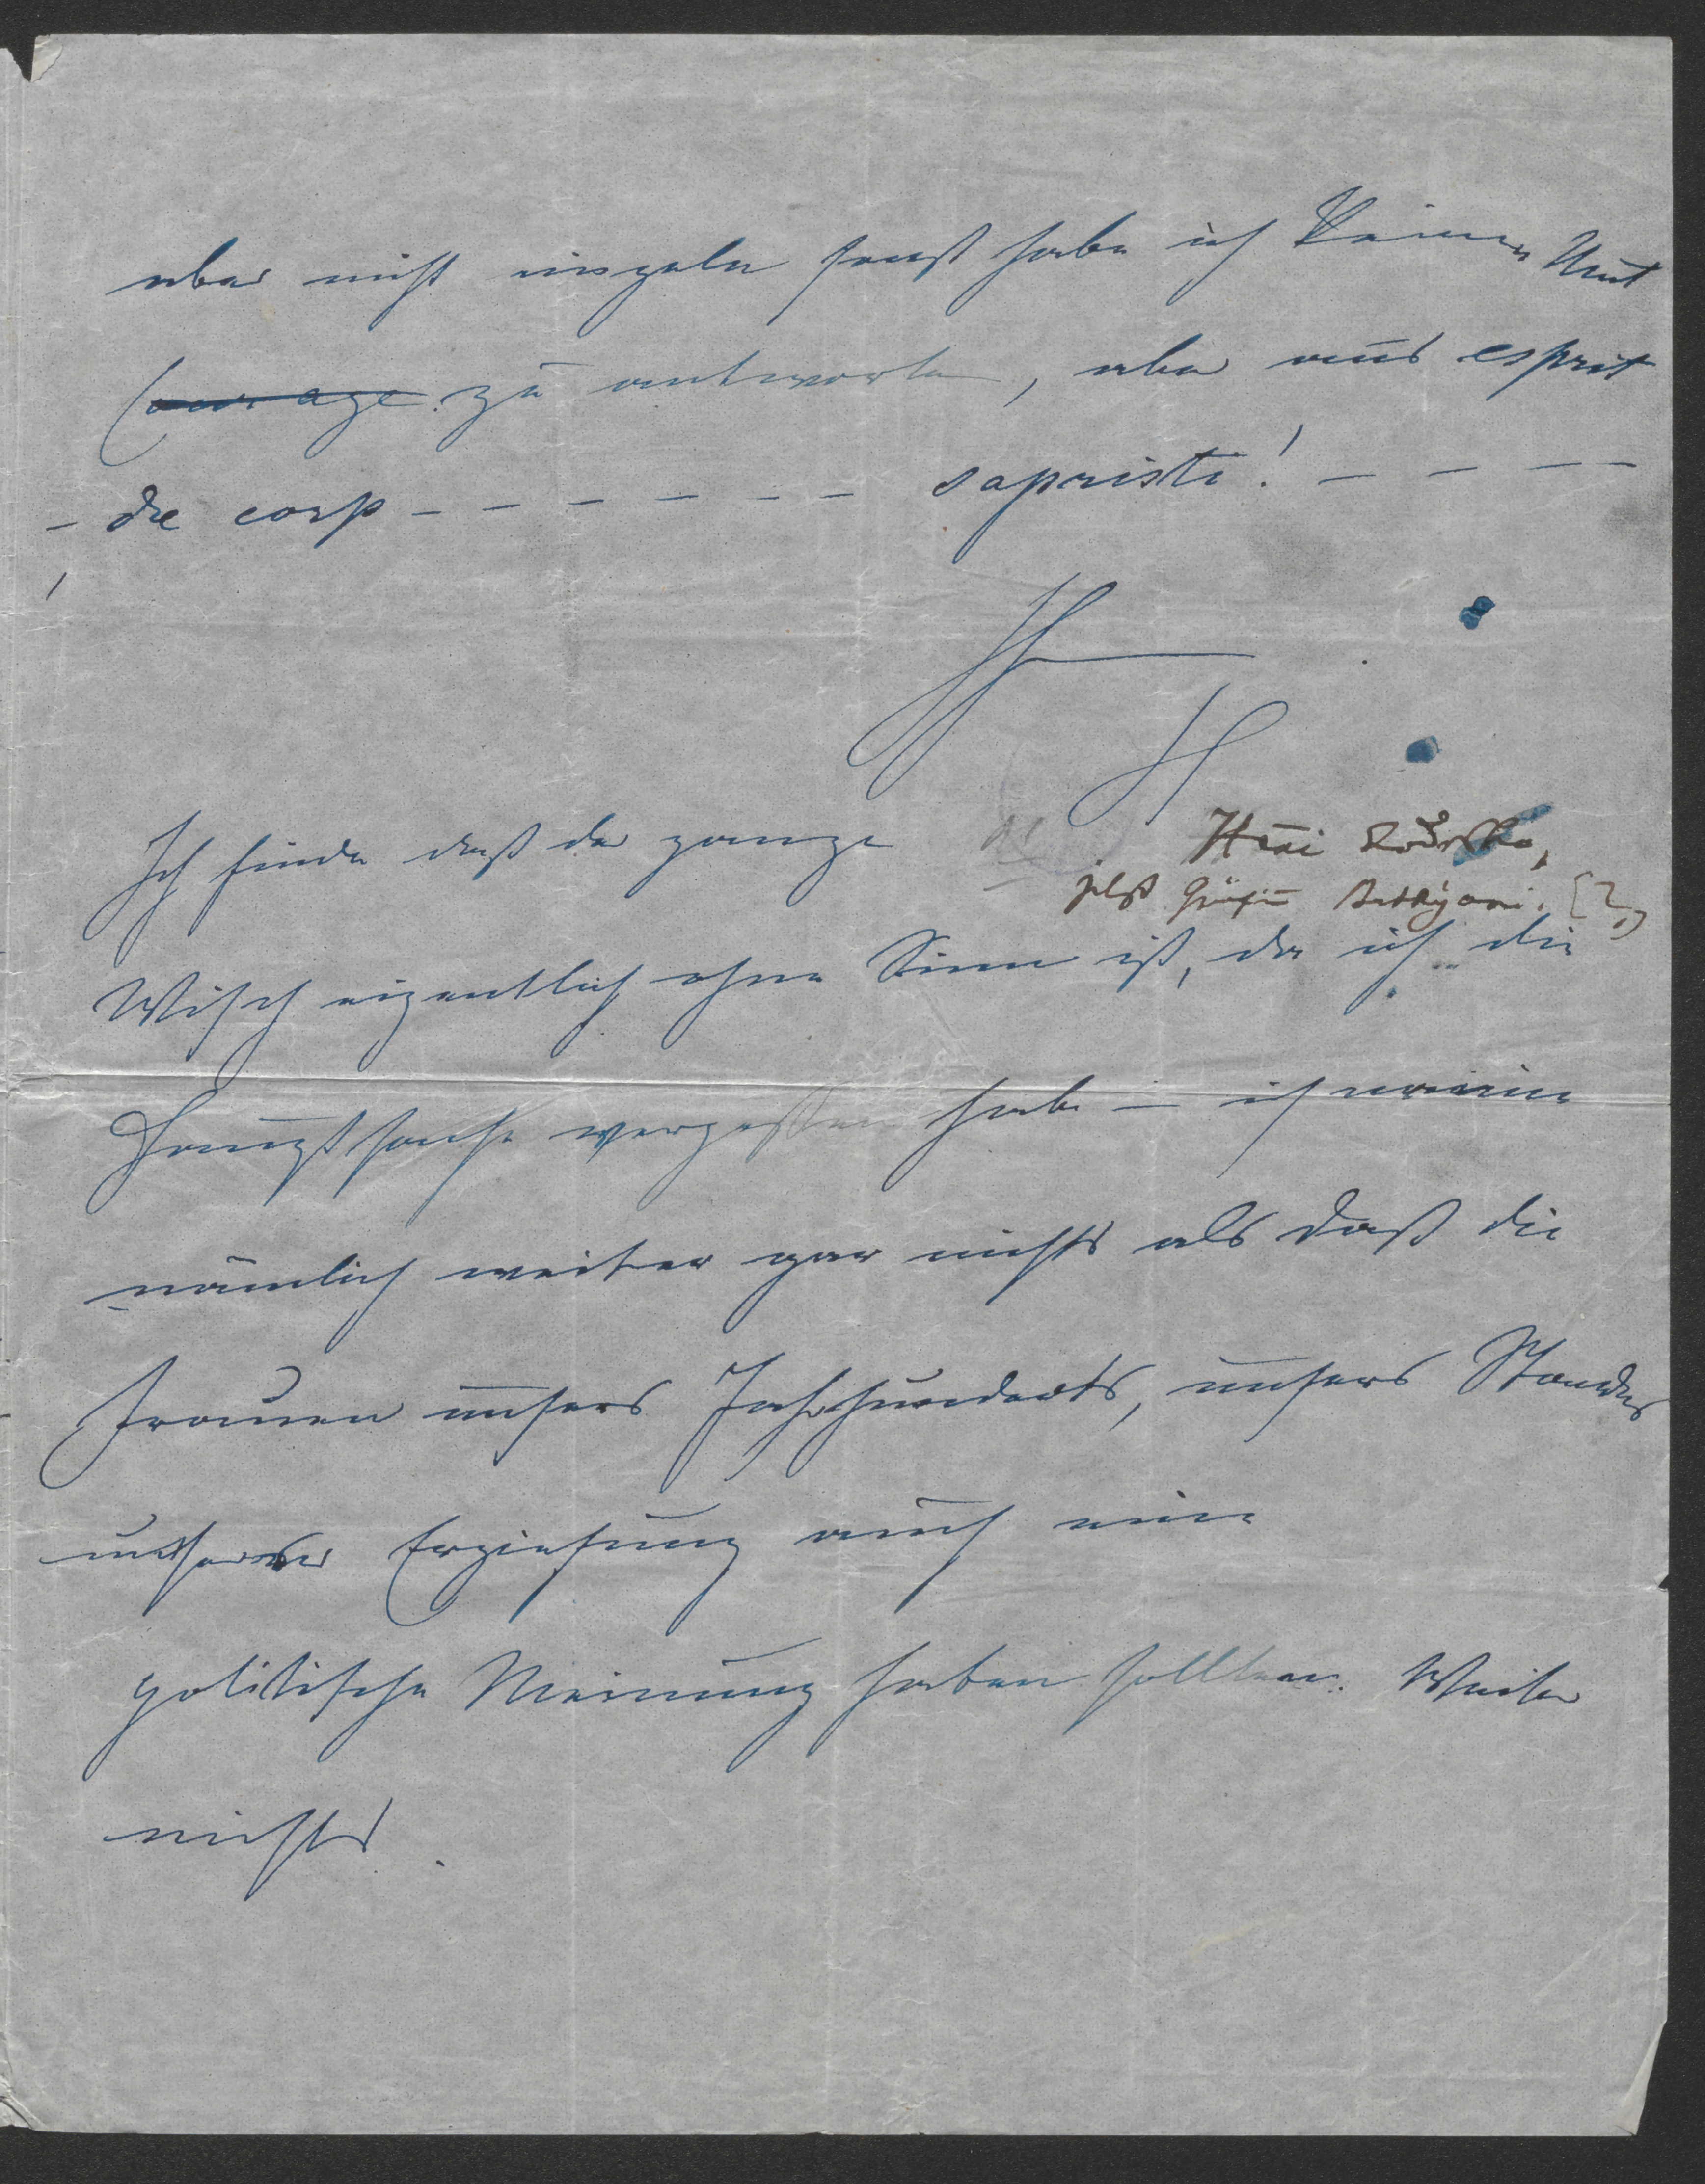 aber nicht singeln sonst habe ich keinen Mut
Courage zu antworten, aber aus esprit
- de corp - - - - - - sapristi! - - - -
H
Ich finde daß der ganze
jetzt Gräfin Batthyani. [?]
Wisch eigentlich ohne Sinn ist, da ich die
Hauptsache vergessen habe – ich meine
nämlich weiter gar nichts als daß die
Frauen unsers Jahrhunderts, unsers Standes
unserer Erziehung auch eine
politische Meinung haben sollten. Weiter
nichts.